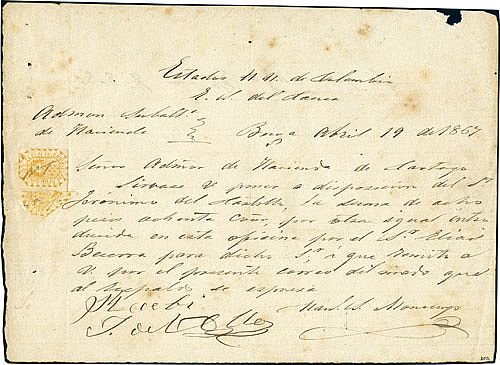 Estados U. U. de Colombia
E. S. del Cauca
Admon Subalt.ª
de Hacienda
Buga Abril 19 de 1867
Señor Admor de Hacienda de Cartago
Sirvase U poner a disposicion del Sr
Jerónimo del Castillo la suma de
pesos ochenta ctvs, por otra igual intro
ducida en esta oficina por el Sr. Elias
Becerra para dicho Sr. i que remito a
U. por el presente correo del modo que
al respaldo se espresa
Recibi
J. del
Man.l